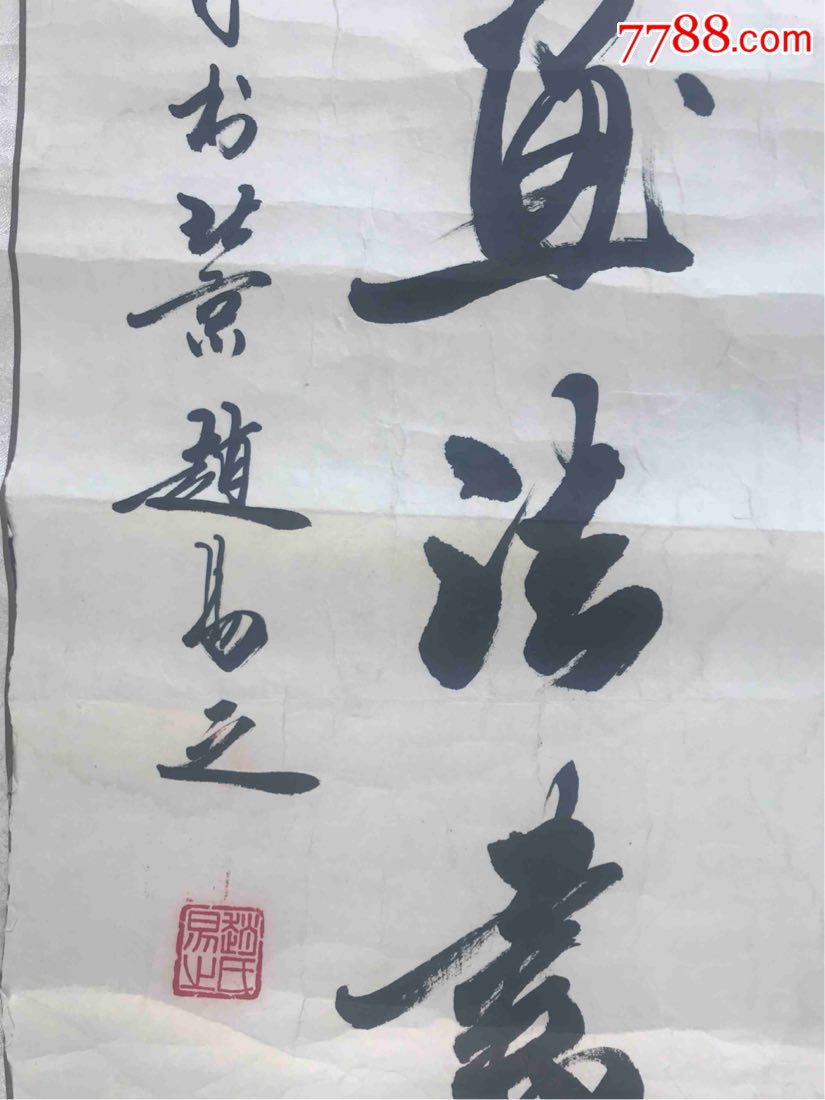 7788.com
法書
於北京趙易之
趙氏易之